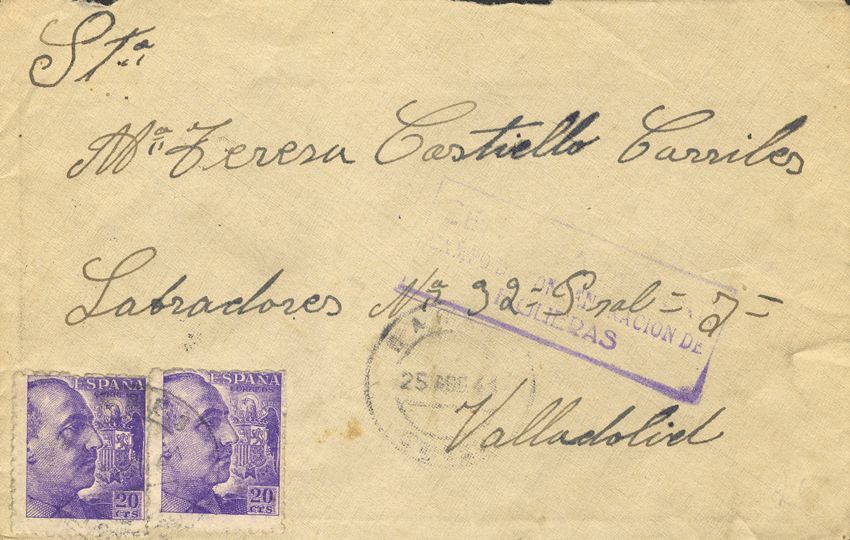 Sta
Ma Teresa Castiello Carriles
Labradores No 32 = Pral = J =
CAMPO DE CONCENTRACION DE
FIGUERAS
25 AGO 41
Valladolid
ESPAÑA
CORREOS
20
CTS
ESPAÑA
CORREOS
20
CTS